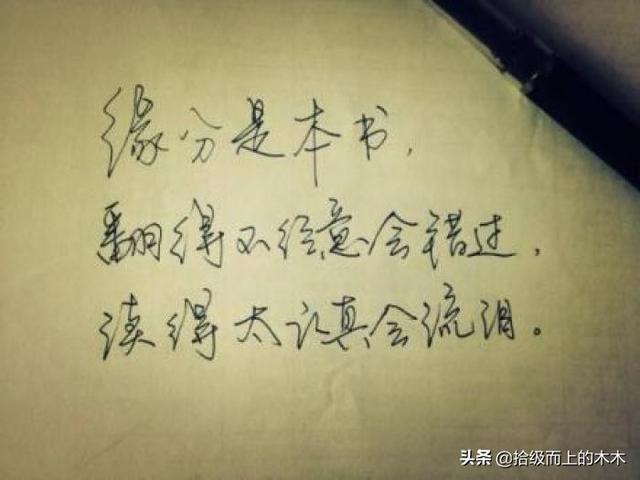 缘分是本书，
翻得不经意会错过，
读得太认真会流泪。
头条 @拾级而上的木木